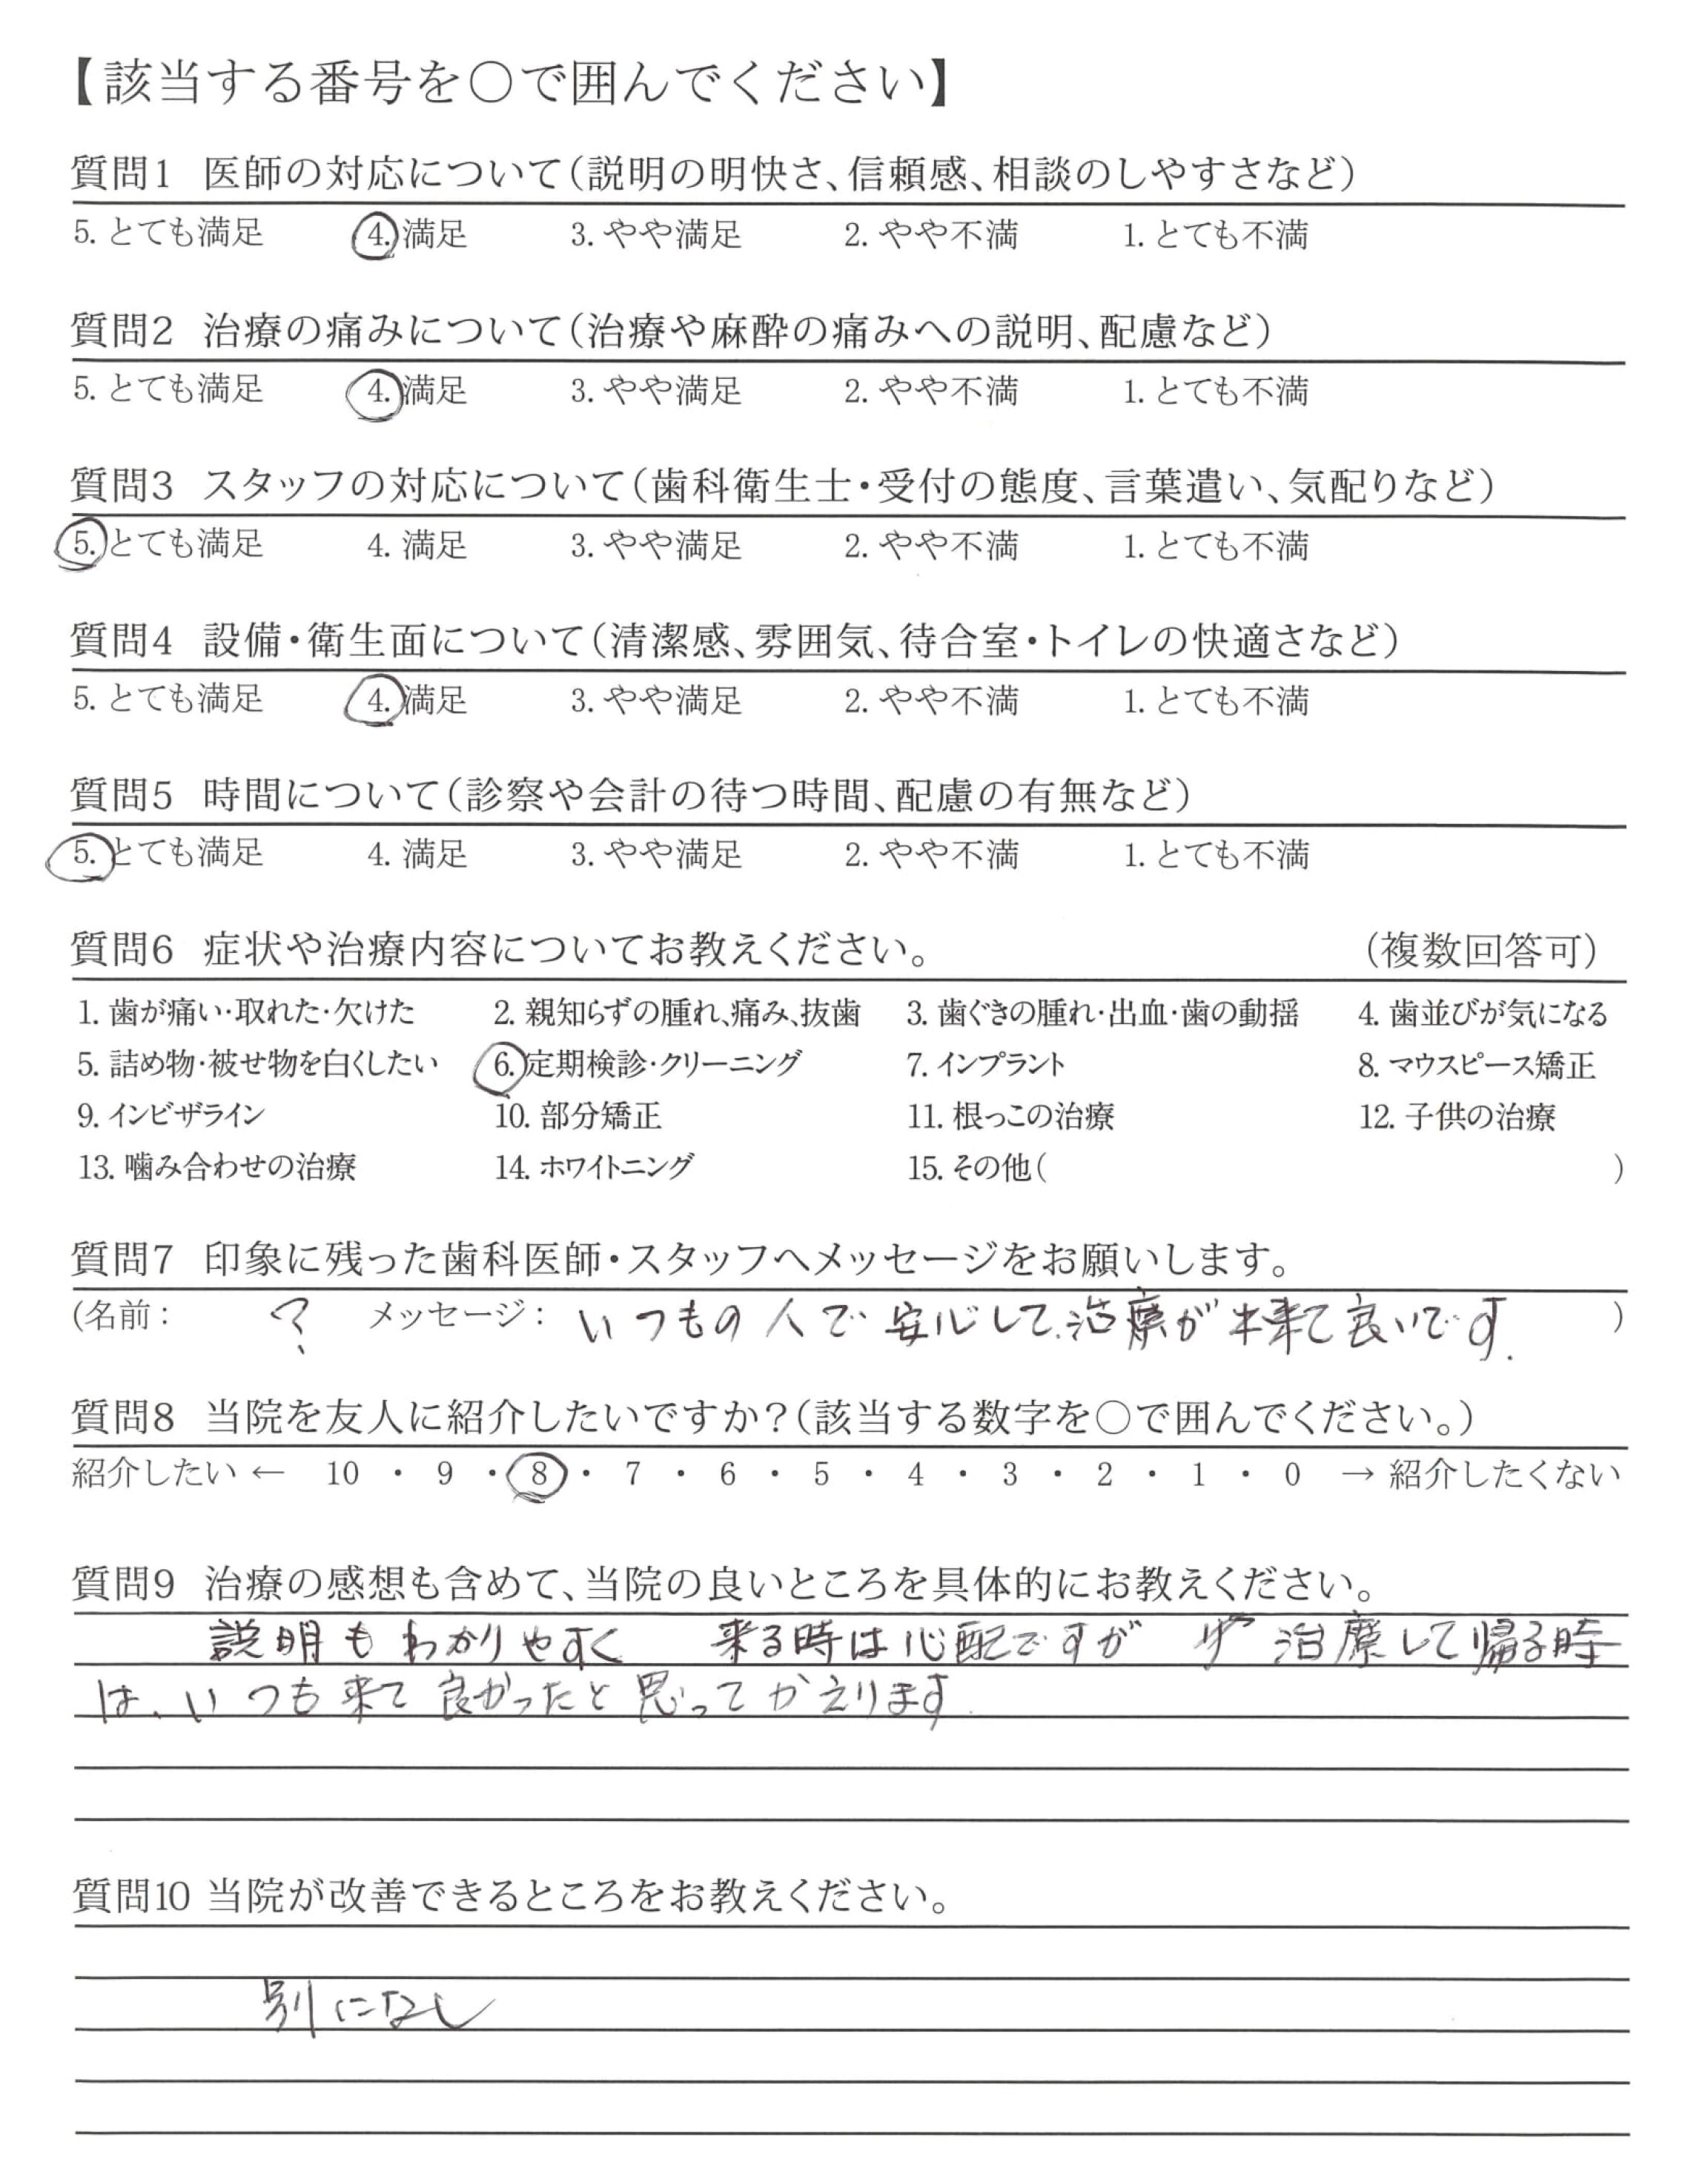 【該当する番号を○で囲んでください】
質問1 医師の対応について(説明の明快さ、信頼感、相談のしやすさなど)
5. とても満足 4. 満足 3. やや満足 2. やや不満 1. とても不満
質問2 治療の痛みについて(治療や麻酔の痛みへの説明、配慮など)
5. とても満足 4. 満足 3. やや満足 2. やや不満 1. とても不満
質問3 スタッフの対応について(歯科衛生士・受付の態度、言葉遣い、気配りなど)
5. とても満足 4. 満足 3. やや満足 2. やや不満 1. とても不満
質問4 設備・衛生面について(清潔感、雰囲気、待合室・トイレの快適さなど)
5. とても満足 4. 満足 3. やや満足 2. やや不満 1. とても不満
質問5 時間について(診察や会計の待つ時間、配慮の有無など)
5. とても満足 4. 満足 3. やや満足 2. やや不満 1. とても不満
質問6 症状や治療内容についてお教えください。 (複数回答可)
1. 歯が痛い・取れた・欠けた 2. 親知らずの腫れ、痛み、抜歯 3. 歯ぐきの腫れ・出血・歯の動揺 4. 歯並びが気になる
5. 詰め物・被せ物を白くしたい 6. 定期検診・クリーニング 7. インプラント 8. マウスピース矯正
9. インビザライン 10. 部分矯正 11. 根っこの治療 12. 子供の治療
13. 噛み合わせの治療 14. ホワイトニング 15. その他( )
質問7 印象に残った歯科医師・スタッフへメッセージをお願いします。
(名前: ? メッセージ: いつもの人で安心して治療が出来て良いです. )
質問8 当院を友人に紹介したいですか?(該当する数字を○で囲んでください。)
紹介したい ← 10 ・ 9 ・ 8 ・ 7 ・ 6 ・ 5 ・ 4 ・ 3 ・ 2 ・ 1 ・ 0 → 紹介したくない
質問9 治療の感想も含めて、当院の良いところを具体的にお教えください。
説明もわかりやすく 来る時は心配ですが 治療して帰る時
は、いつも来て良かったと思ってかえります
質問10 当院が改善できるところをお教えください。
別になし